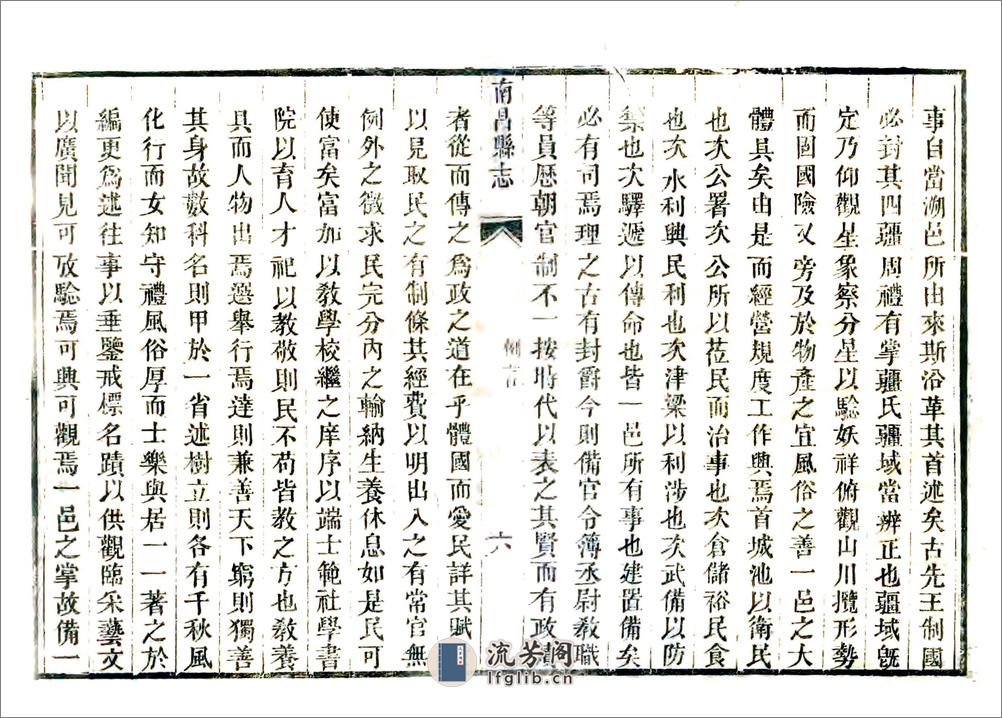 事自當溯邑所由來斯沿革其首述矣古先王制國
必封其四疆周禮有掌疆氏疆域當辨正也疆域旣
定乃仰觀星象察分星以騐妖祥俯觀山川攬形勢
而固國險又旁及於物產之宜風俗之善一邑之大
體具矣由是而經營規度工作興焉首城池以衛民
也次公署次公所以莅民而治事也次倉儲裕民食
也次水利興民利也次津梁以利涉也次武備以防
禁也次驛遞以傳命也皆一邑所有事也建置備矣
必有司焉理之古有封爵今則備官令簿丞尉教職
等員歷朝官制不一按時代以表之其賢而有政績
南昌縣志
例言
六
者從而傳之爲政之道在乎體國而愛民詳其賦
以見取民之有制條其經費以明出入之有常官無
例外之徵求民完分內之輸納生養休息如是民可
使富矣富加以敎學校繼之庠序以端士範社學書
院以育人才祀以教敬則民不苟皆教之方也敎養
具而人物出焉選舉行焉達則兼善天下窮則獨善
其身故數科名則甲於一省述樹立則各有千秋風
化行而女知守禮風俗厚而士樂與居一一著之於
編更爲述往事以垂鑒戒標名蹟以供觀臨采藝文
以廣聞見可攷騐焉可興可觀焉一邑之掌故備一
流芳阁
lfglib.cn